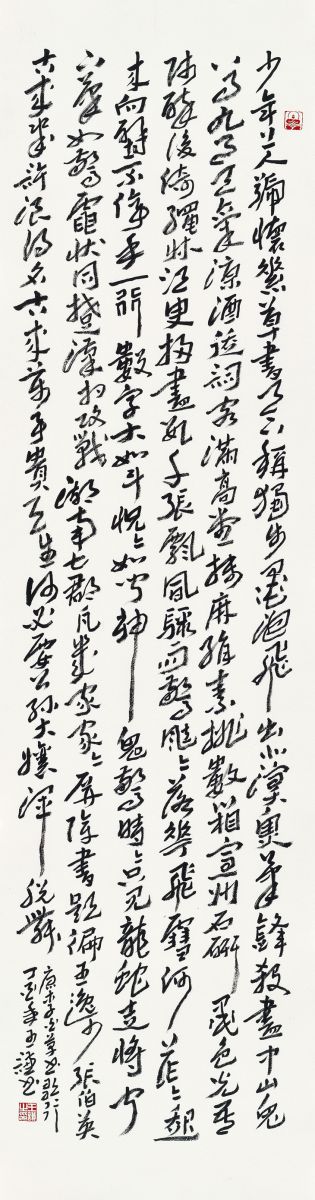 少年上人號懷素草書天下稱獨步墨池飛出北溟魚筆鋒殺盡中山兔
八月九月天氣涼酒徒詞客滿高堂牋麻絹素排數箱宣州石硯墨色光吾
師醉後倚繩牀須臾掃盡數千張飄風驟雨驚颯颯落花飛雪何茫茫起
來向壁不停手一行數字大如斗怳怳如聞神鬼驚時時只見龍蛇走左盤
右蹙如驚電狀同楚漢相攻戰湖南七郡凡幾家家家屏障書題遍王逸少張伯英
古來幾許浪得名古來萬事貴天生何必要公孫大孃渾脫舞
草書歌行
丁亥年王鏞書